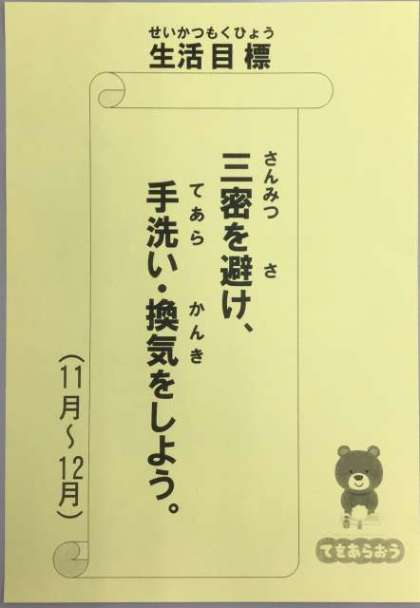 せいかつもくひょう
生活目標
さんみつ さ
三密を避け、
てあら かんき
手洗い・換気をしよう。
(11月~12月)
てをあらおう